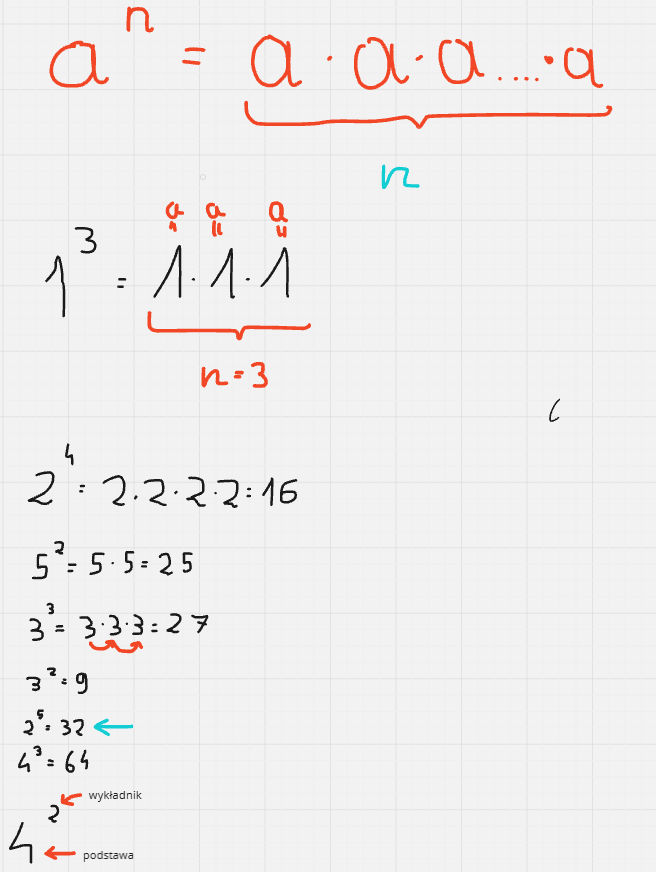 aⁿ = a · a · a .... · a
n
a a a
1³ = 1 · 1 · 1
n = 3
2⁴ = 2 · 2 · 2 · 2 = 16
5² = 5 · 5 = 25
3³ = 3 · 3 · 3 = 27
3² = 9
2⁵ = 32
4³ = 64
wykładnik
4²
podstawa